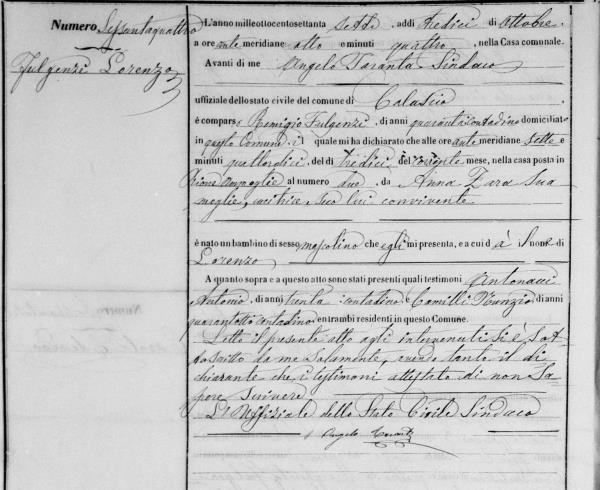 Numero Sessantaquattro
Fulgenzi Lorenzo
L'anno milleottocentosettanta sette, addi tredici di Ottobre
a ore ante meridiane otto e minuti quattro, nella Casa comunale.
Avanti di me Angelo Taranta Sindaco
uffiziale dello stato civile del comune di Calascio
è comparso Remigio Fulgenzi, di anni quaranta contadino domiciliato
in questo Comune, il quale mi ha dichiarato che alle ore ante meridiane sette e
minuti quattordici, del dì tredici del corrente mese, nella casa posta in
Rione al numero due, da Anna Zara sua
moglie, cucitrice, seco lui convivente
è nato un bambino di sesso mascolino che egli mi presenta, e a cui dà il nome di
Lorenzo
A quanto sopra e a questo atto sono stati presenti quali testimoni Antonacci
Antonio, di anni trenta contadino e Camilli Nunzio, di anni
quarantotto contadino entrambi residenti in questo Comune.
Letto il presente atto agli intervenuti si è sot
toscritto da me solamente, avendo tanto il di
chiarante che i testimoni attestato di non sa
pere scrivere
L'Uffiziale dello Stato Civile Sindaco
Angelo Taranta